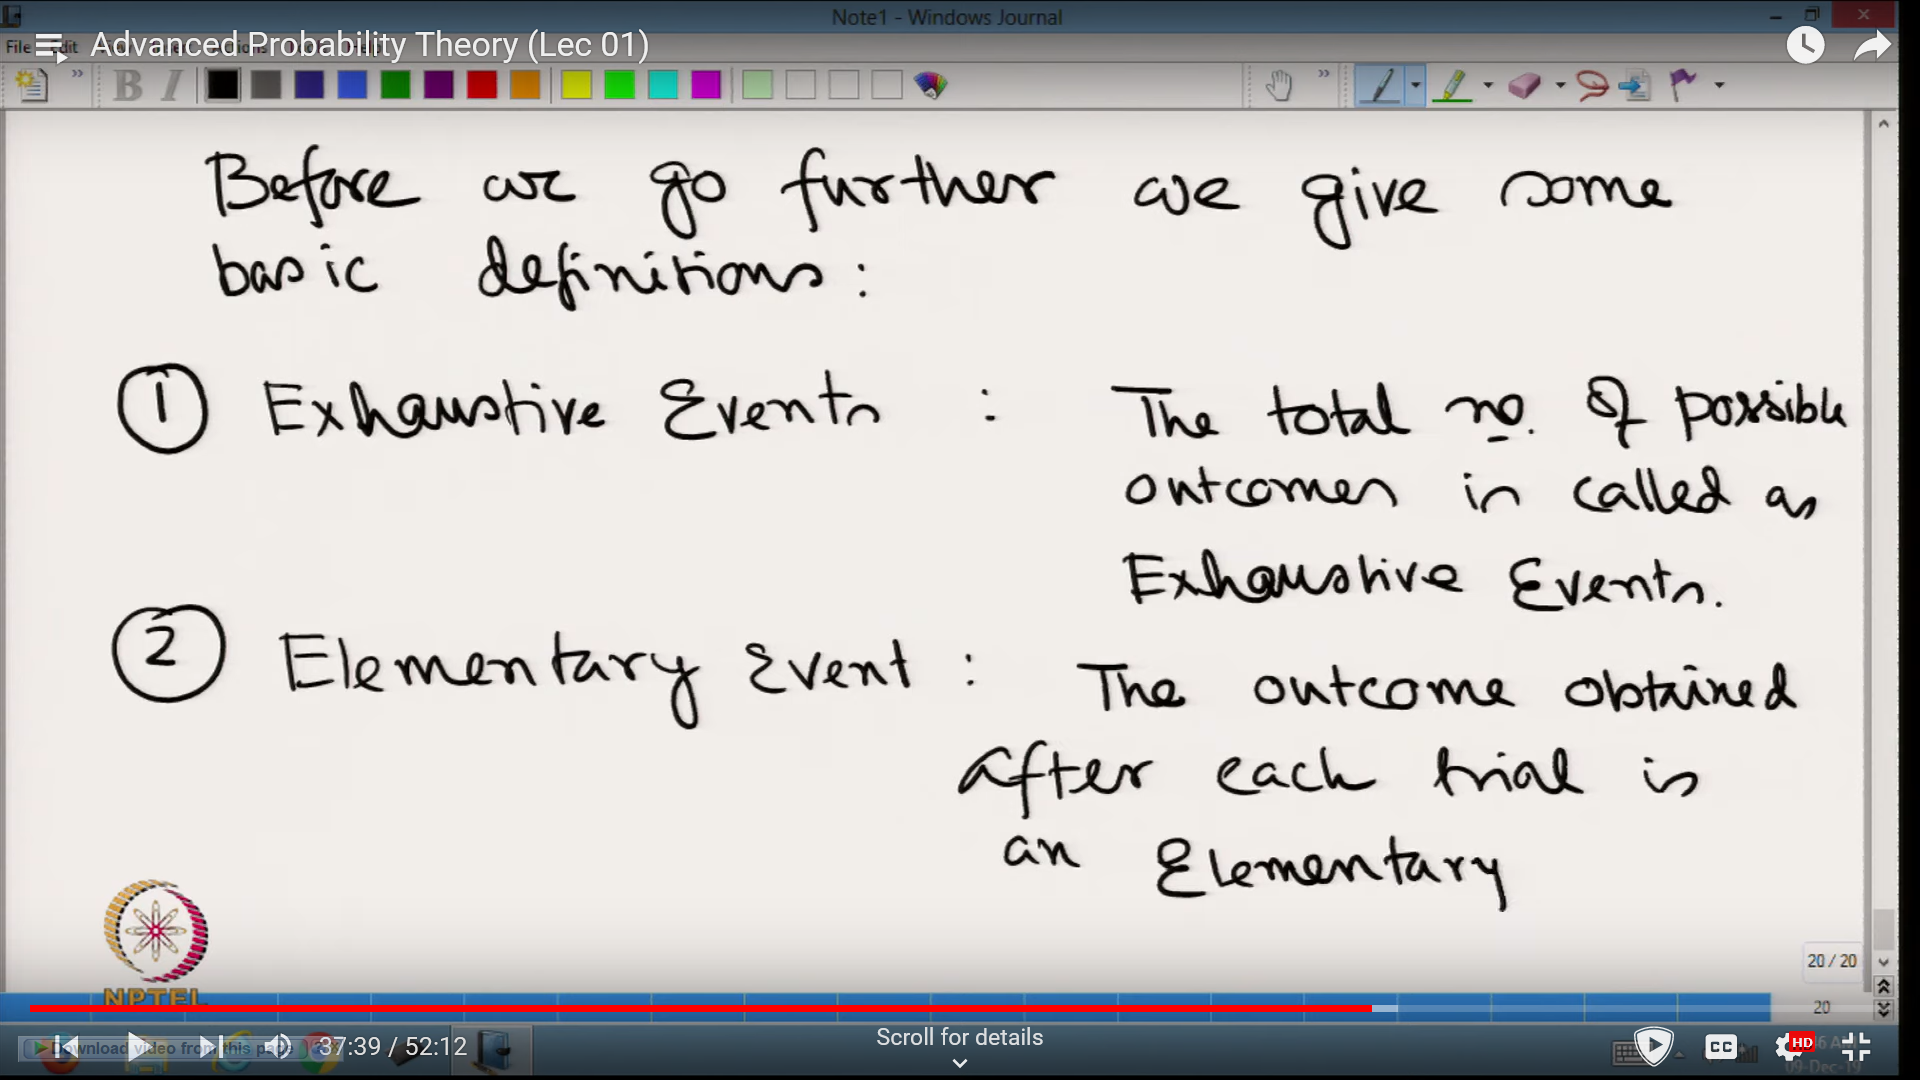 Note1 - Windows Journal
Advanced Probability Theory (Lec 01)
File Edit
B I
Before we go further we give some
basic definitions :
1 Exhaustive Events : The total no. of possible
outcomes is called as
Exhaustive Events.
2 Elementary Event : The outcome obtained
after each trial is
an Elementary
NPTEL
20 / 20
20
Scroll for details
Download video from this page
37:39 / 52:12
CC
HD
09-Dec-19